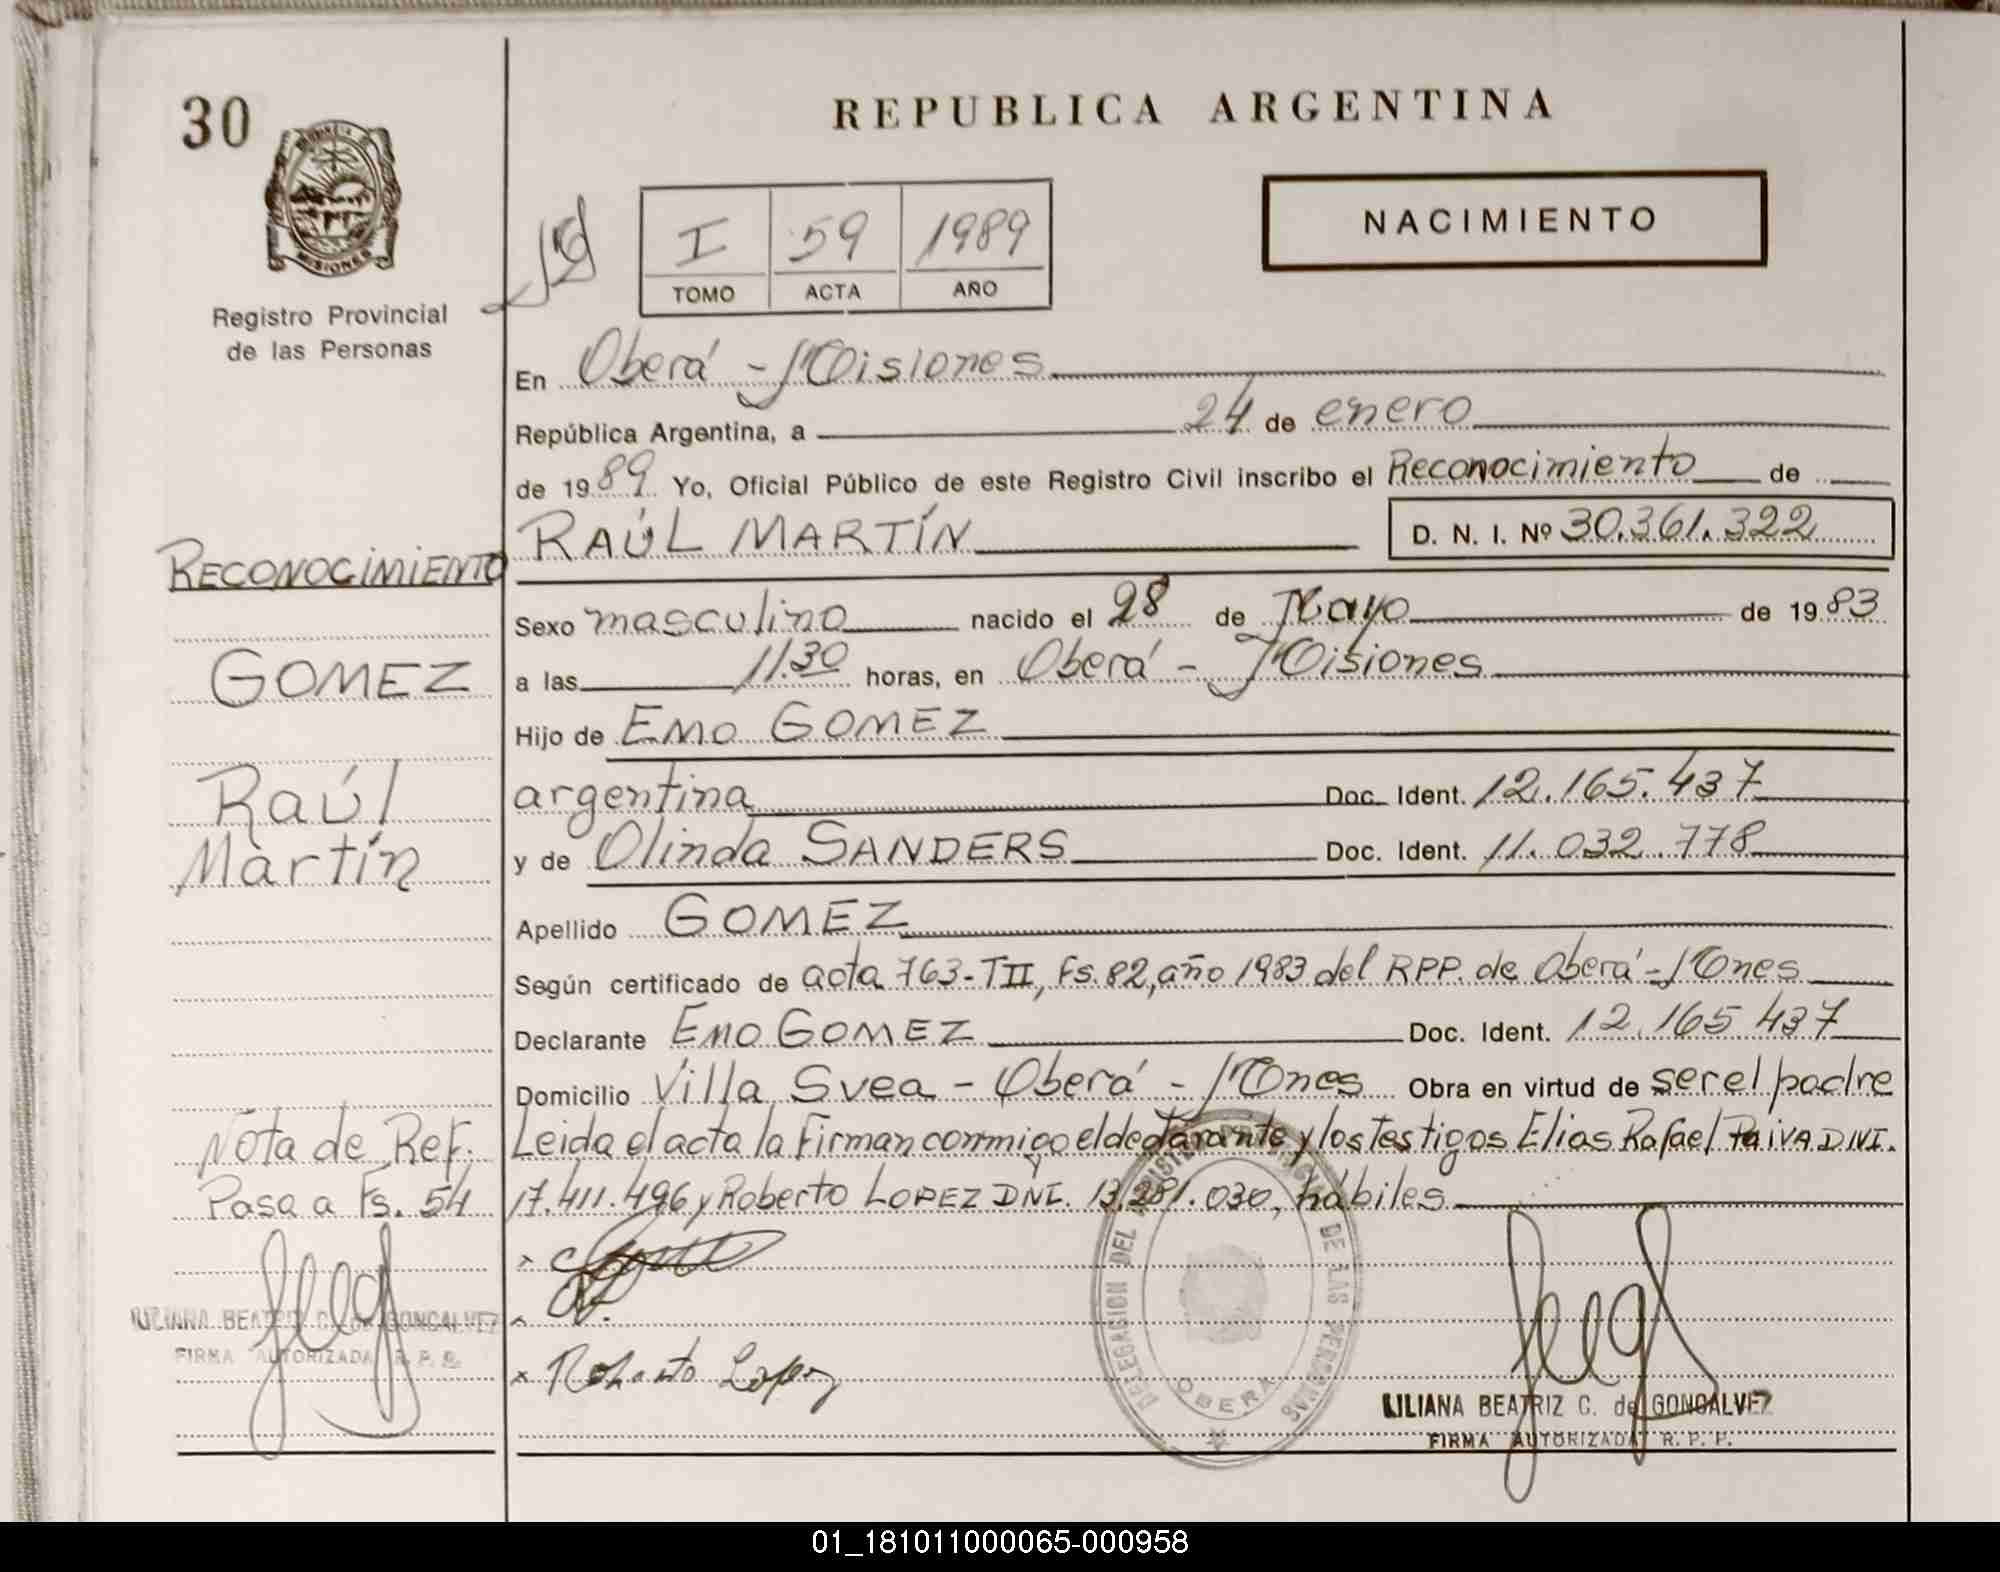 30
REPUBLICA ARGENTINA
MISIONES
Registro Provincial
de las Personas
I 59 1989
TOMO ACTA AÑO
NACIMIENTO
En Oberá - Misiones
República Argentina, a 24 de enero
de 1989 Yo, Oficial Público de este Registro Civil inscribo el Reconocimiento de
RAÚL MARTÍN D. N. I. Nº 30.361.322
Sexo masculino nacido el 28 de Mayo de 1983
a las 11.30 horas, en Oberá - Misiones
Hijo de EMO GOMEZ
argentina Doc. Ident. 12.165.437
y de Olinda SANDERS Doc. Ident. 11.032.778
Apellido GOMEZ
Según certificado de acta 763-TII, Fs. 82, año 1983 del RPP. de Oberá - Mnes
Declarante EMO GOMEZ Doc. Ident. 12.165.437
Domicilio Villa Svea - Oberá - Mnes Obra en virtud de ser el padre
Leida el acta la Firman conmigo el declarante y los testigos Elias Rafael PAIVA D.N.I.
17.411.496 y Roberto LOPEZ DNI. 13.281.030, hábiles
Roberto Lopez
DELEGACION DEL REGISTRO PROVINCIAL DE LAS PERSONAS
OBERA
LILIANA BEATRIZ C. de GONCALVEZ
FIRMA AUTORIZADA R. P. P.
RECONOCIMIENTO
GOMEZ
Raúl
Martín
Nota de Ref.
Pasa a Fs. 54
LILIANA BEATRIZ C. de GONCALVEZ
FIRMA AUTORIZADA R. P. P.
01_181011000065-000958